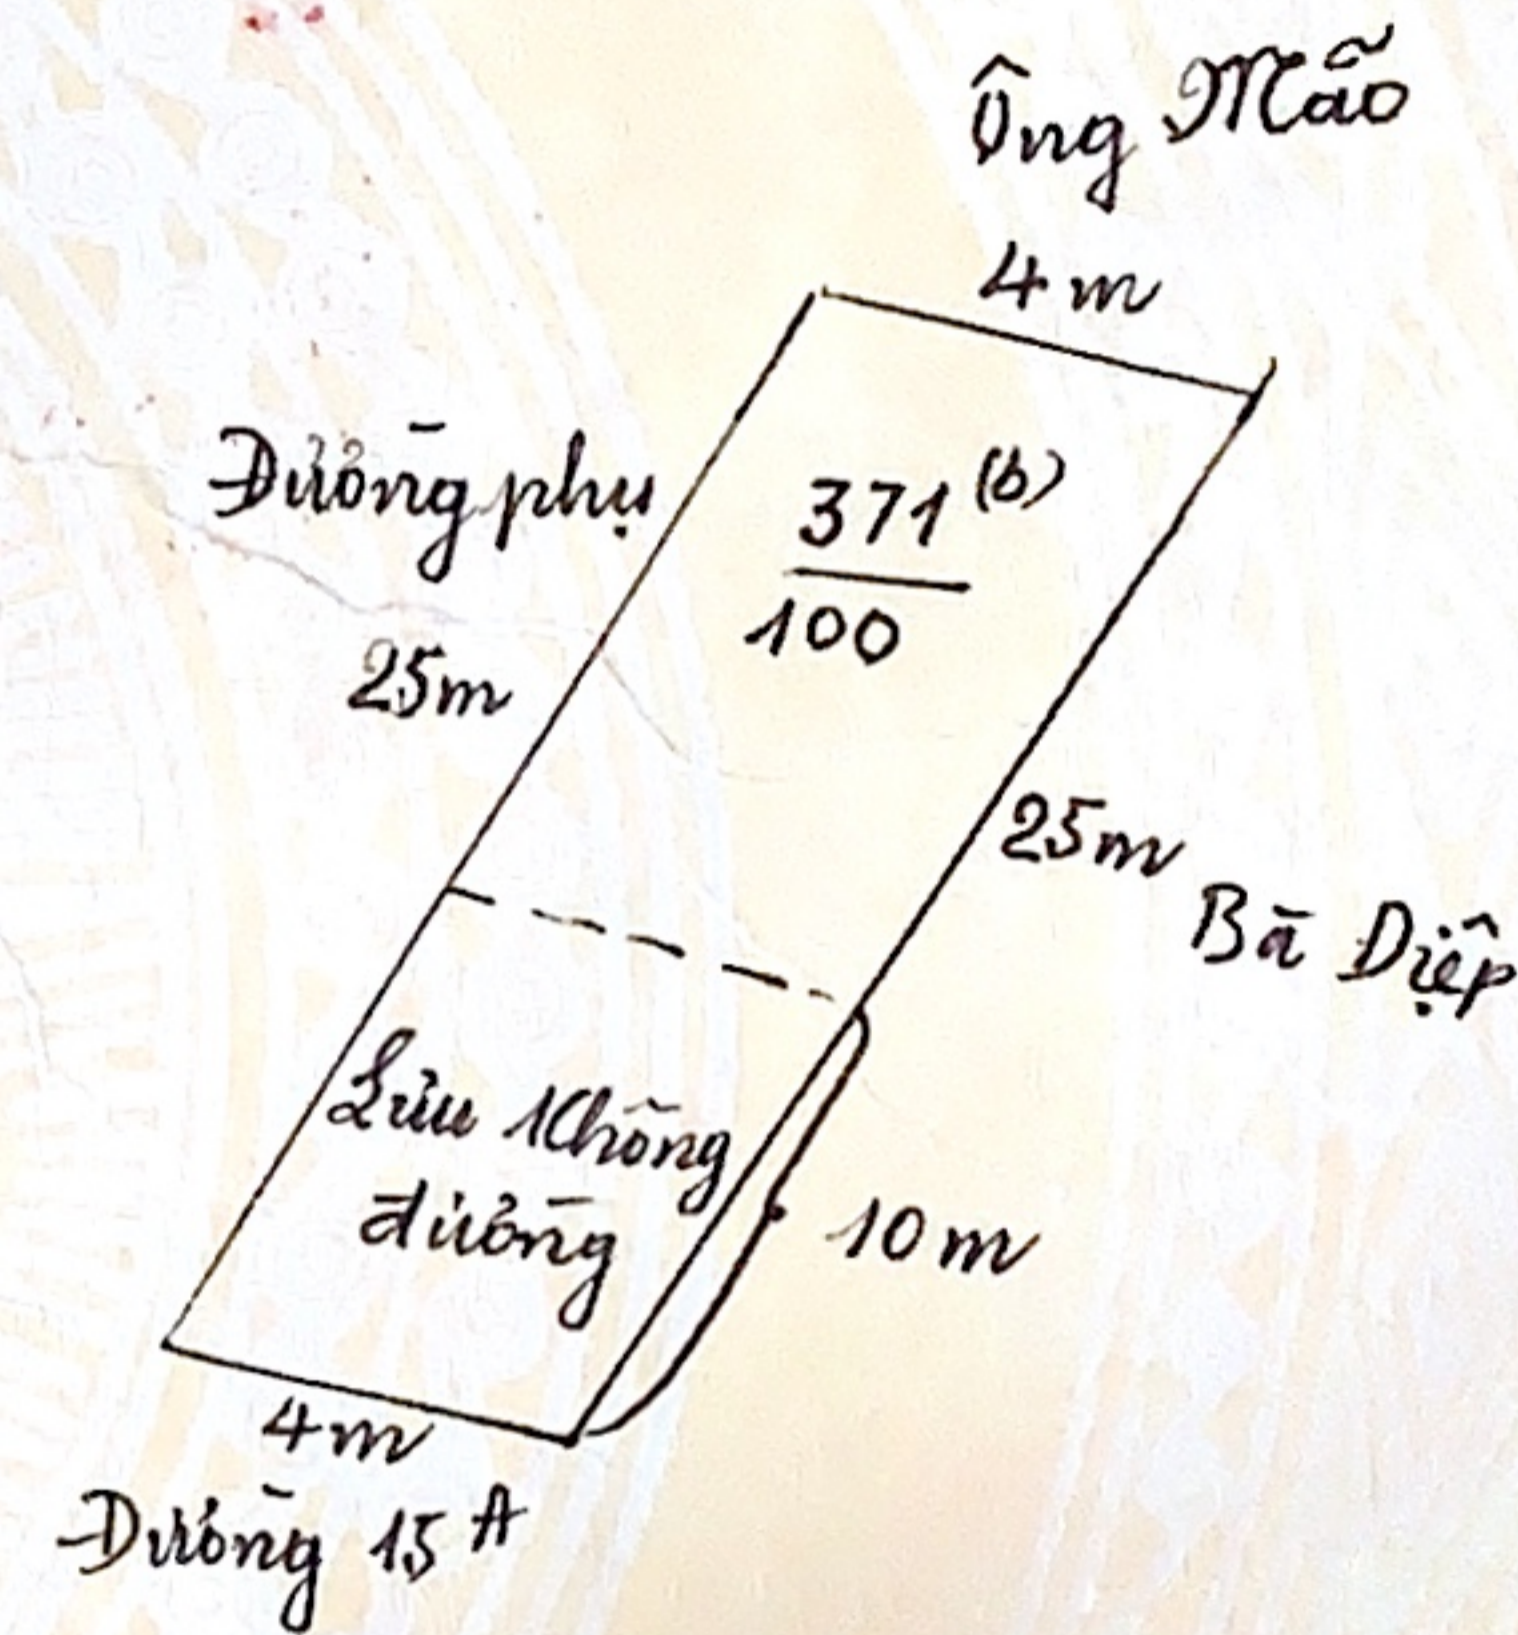 Ông Mão
4m
Đường phụ
371(b)
100
25m
25m
Bà Diệp
Lưu Không
đường
10m
4m
Đường 15A